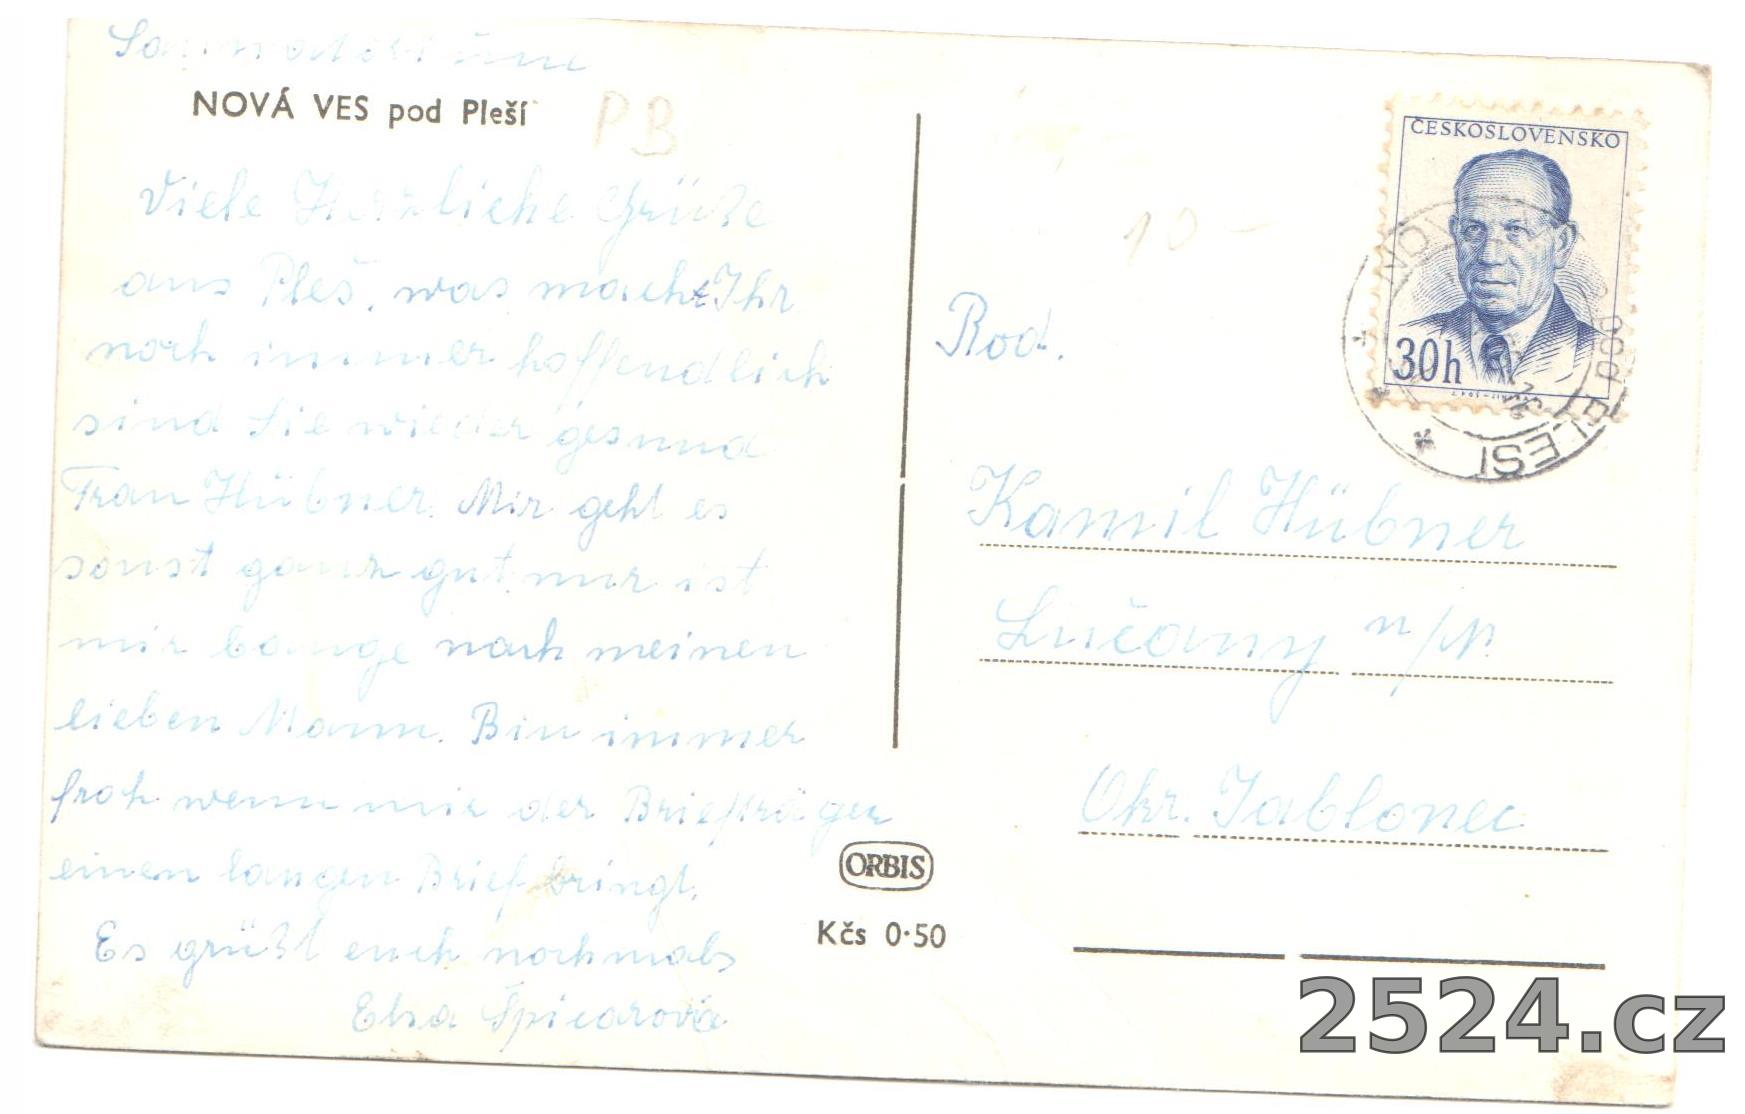 Sannatorium
NOVÁ VES pod Pleší
PB
Viele Herzliche Grüße
aus Pleš, was macht Ihr
noch immer hoffendlich
sind Sie wieder gesund
Frau Hübner. Mir geht es
sonst ganz gut nur ist
mir bange nach meinen
lieben Mann. Bin immer
froh wenn mir der Briefträger
einen langen Brief bringt.
Es grüßt euch nochmals
Elsa Špicarová
ORBIS
Kčs 0·50
ČESKOSLOVENSKO
30h
PLEŠÍ
10-
Rod.
Kamil Hübner
Lučany n/N.
Okr. Jablonec
2524.cz